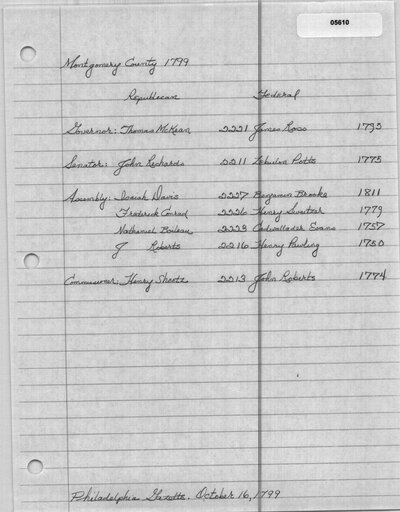 05610
Montgomery County 1799
Republican Federal
Governor: Thomas McKean 2221 James Ross 1793
Senator: John Richards 2211 Zebulon Potts 1775
Assembly: Isaiah Davis 2227 Benjamin Brooke 1811
Frederick Conrad 2226 Henry Sweitzer 1779
Nathaniel Boileau 2223 Cadwallader Evans 1757
J Roberts 2216 Henry Pawling 1750
Commissioner: Henry Sheetz 2213 John Roberts 1774
Philadelphia Gazette. October 16, 1799